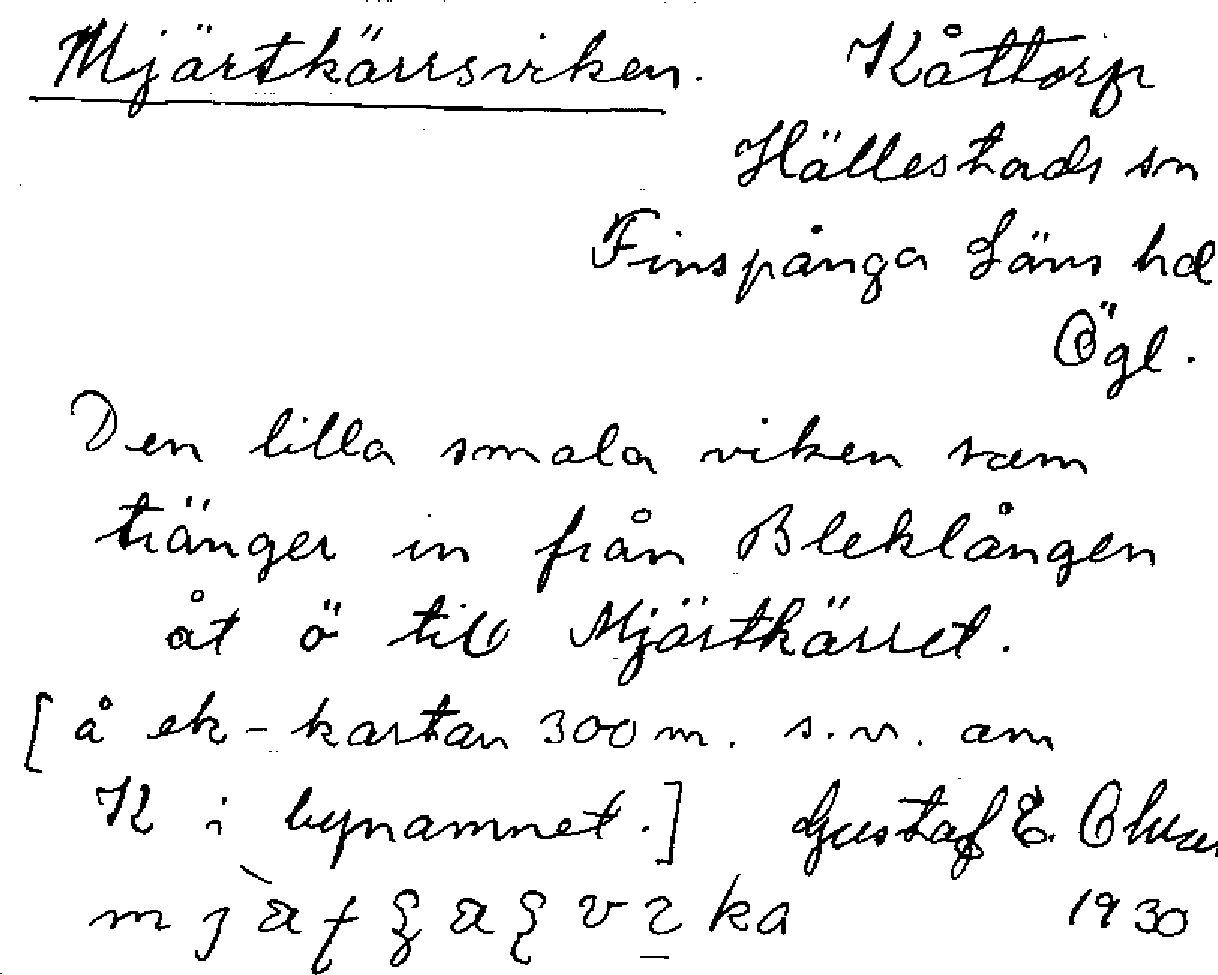 Mjärtkärrsviken. Kåttorp
Hällestads sn
Finspånga Läns hd
Ögl.
Den lilla smala viken som
tränger in från Bleklången
åt ö till Mjärtkärret.
[å ek-kartan 300 m. s.v. om
K i bynamnet.] Gustaf E.
1930